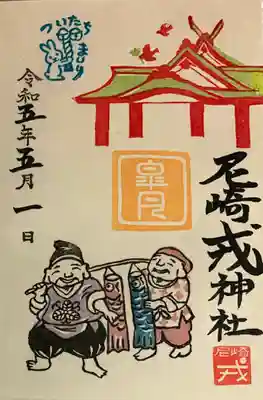 ついたちまいり
尼崎戎神社
皐月
令和五年五月一日
尼崎
戎